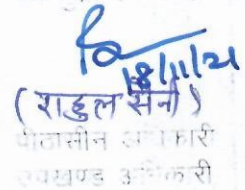 18/11/21
(राहुल सैनी)
पीठासीन अधिकारी
उपखण्ड अधिकारी